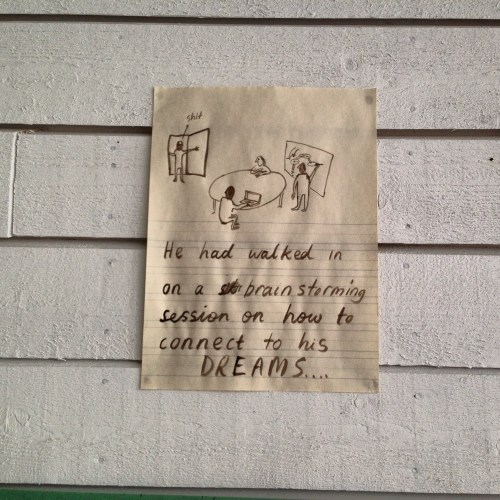 shit
He had walked in
on a brainstorming
session on how to
connect to his
DREAMS....